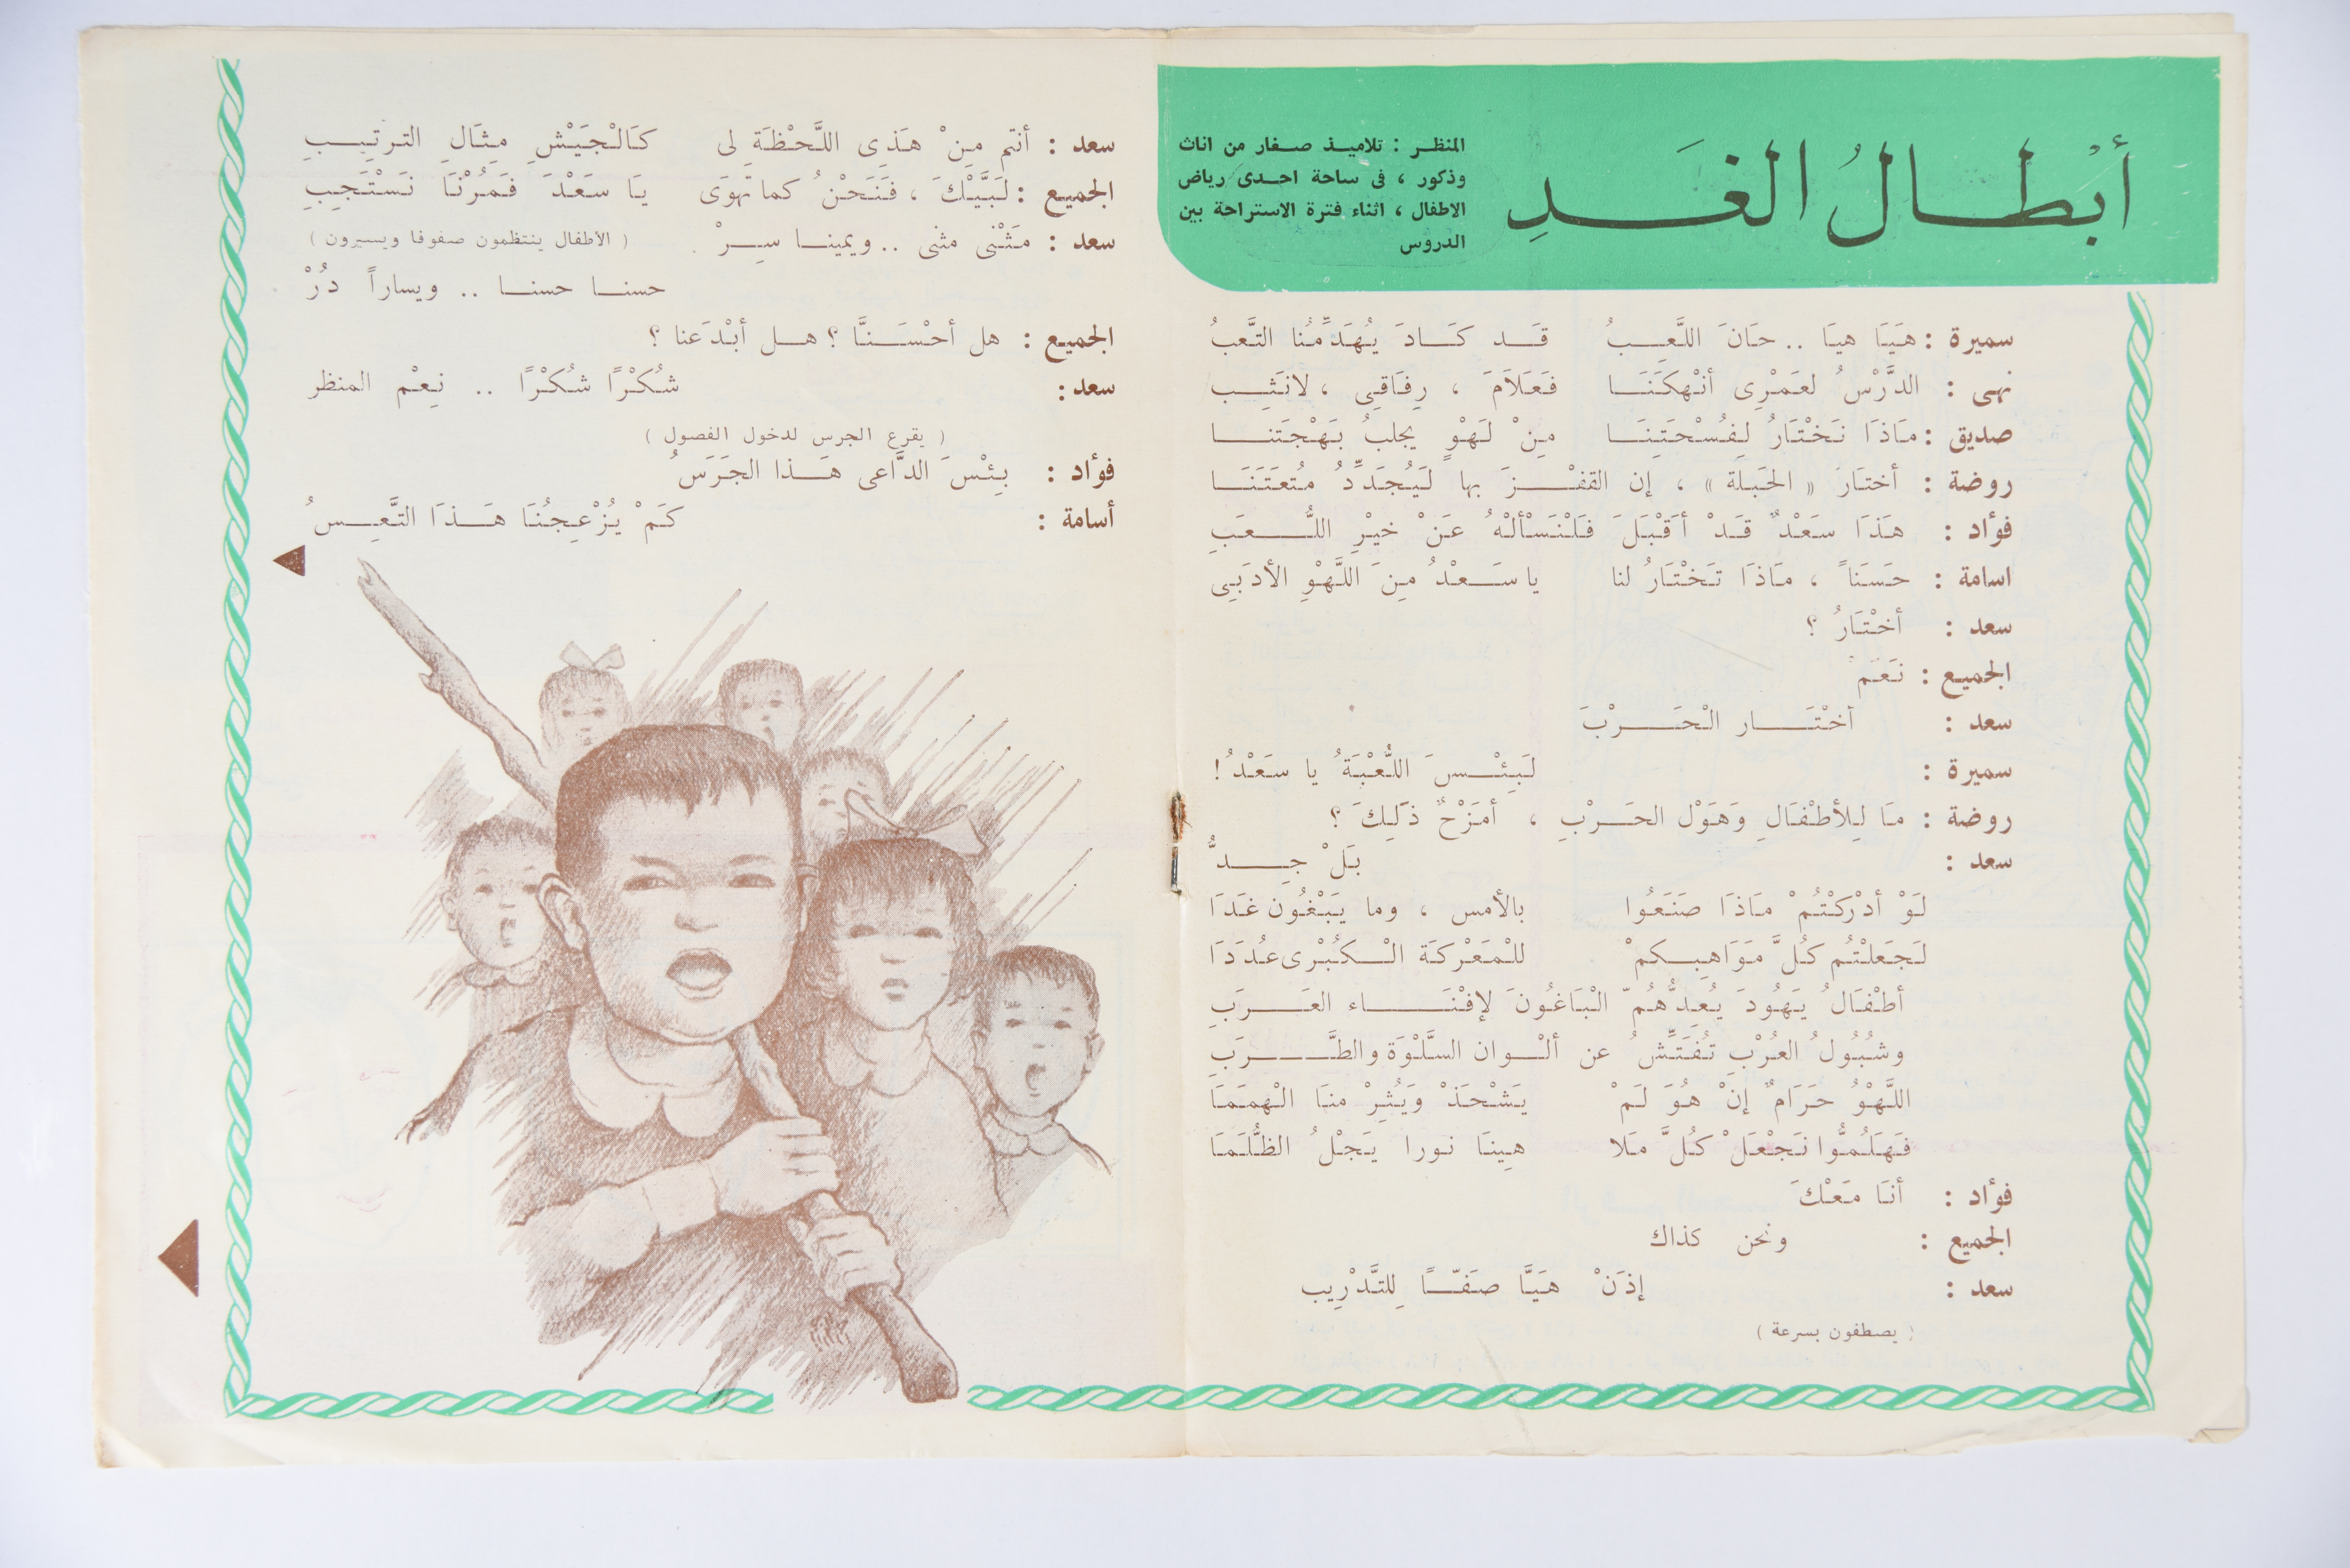 أبْطالُ الغَدِ
المنظر : تلاميذ صغار من اناث
وذكور ، فى ساحة احدى رياض
الاطفال ، اثناء فترة الاستراحة بين
الدروس
سميرة : هَيَا هيَا .. حَانَ اللَّعِبُ قَد كَادَ يُهَدِّمُنا التَّعبُ
نهى : الدَّرْسُ لعَمْرِى أنْهكَنَا فَعَلَامَ ، رِفَاقِى ، لانَثِب
صديق : مَاذَا نَخْتَارُ لِفُسْحَتِنَا مِنْ لَهْوٍ يجلبُ بَهْجَتنا
روضة : أختَارَ « الحَبلة » ، إن القفْزَ بها لَيُجَدِّدُ مُتعَتَنَا
فؤاد : هَذَا سَعْدٌ قَدْ أقْبَلَ فَلْنَسْألْهُ عَنْ خيْرِ اللُّعَبِ
اسامة : حَسَناً ، مَاذَا تَخْتَارُ لنا يا سَعْدُ مِنَ اللَّهْوِ الأدَبِى
سعد : أخْتَارُ ؟
الجميع : نَعَمْ
سعد : أخْتَار الْحَرْبَ
سميرة : لَبِئْسَ اللُّعْبَةُ يا سَعْدُ !
روضة : مَا لِلأطْفَالِ وَهَوْل الحَرْبِ ، أمَزْحٌ ذَلِكَ ؟
سعد : بَلْ جِدُّ
لَوْ أدْركْتُمْ مَاذَا صَنَعُوا بالأمس ، وما يَبْغُون غَدَا
لَجَعَلْتُم كُلَّ مَوَاهِبِكمْ للْمَعْركَة الْكُبْرى عُدَدَا
أطْفَالُ يَهُودَ يُعِدُّهُمّ الْبَاغُونَ لإفْنَاء العَرَبِ
وشُبُولُ العُرْبِ تُفَتِّشُ عن ألْوان السَّلْوَة والطَّرَبِ
اللَّهْوُ حَرَامٌ إنْ هُوَ لَمْ يَشْحَذْ وَيُثِرْ منَا الْهمَمَا
فَهَلُمُّوا نَجْعَلْ كُلَّ مَلا هِينَا نورا يَجْلُ الظُّلَمَا
فؤاد : أنَا مَعْكَ
الجميع : ونحن كذاك
سعد : إذَنْ هَيَّا صَفّاً لِلتَّدْرِيب
( يصطفون بسرعة )
سعد : أنتم مِنْ هَذِى اللَّحْظَةِ لى كَالْجَيْشِ مِثَالِ الترتِيبِ
الجميع : لَبَّيْكَ ، فَنَحْنُ كما تهوَى يَا سَعْدَ فَمُرْنَا نَسْتَجِبِ
سعد : مَثْنى مثنى .. ويمينا سِرْ ( الأطفال ينتظمون صفوفا ويسيرون )
حسنا حسنا .. ويساراً دُرْ
الجميع : هل أحْسَنَّا ؟ هل أبْدَعنا ؟
سعد : شُكْرًا شُكْرًا .. نِعْم المنظر
( يقرع الجرس لدخول الفصول )
فؤاد : بِئْسَ الدَّاعى هَذا الجَرَسُ
أسامة : كَمْ يُزْعِجُنَا هَذَا التَّعِسُ